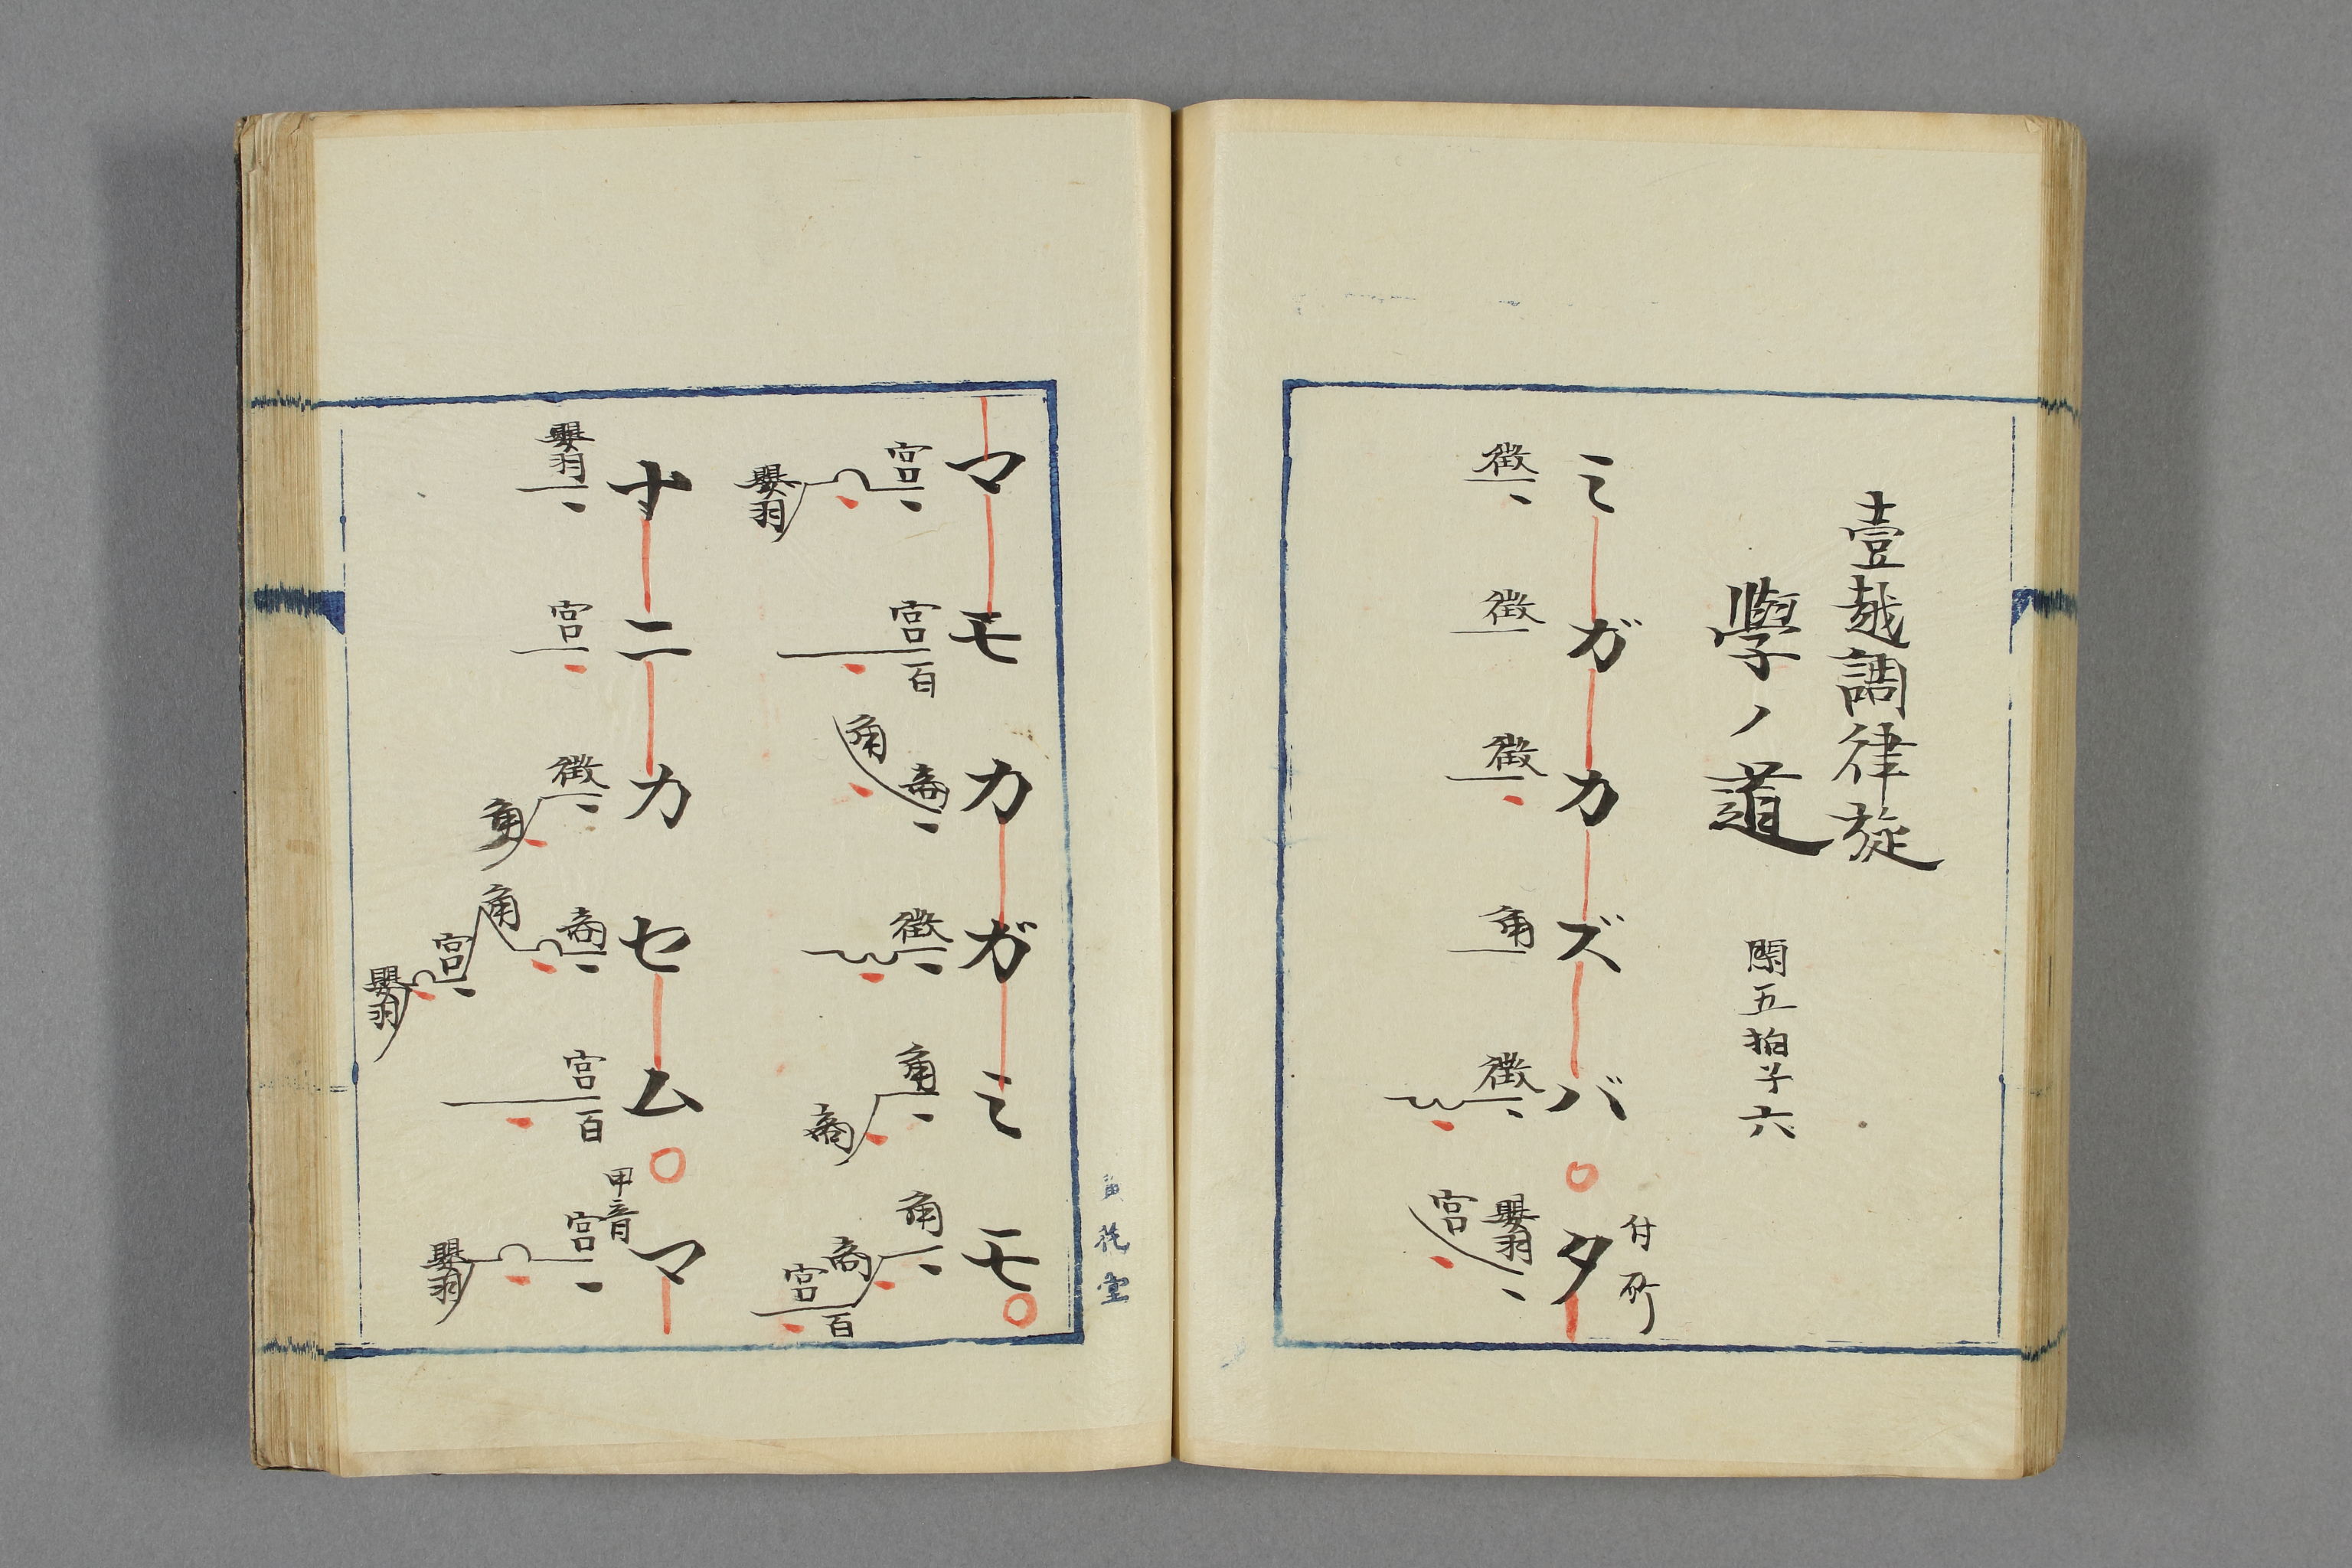 壹越調律旋
學ノ道 閑五拍子六
ミガカズバ 付所 タ
徴 徴 徴 角 徴 嬰羽 宮
マモカガミモ
宮 嬰羽 宮 百 商 角 徴 角 商 角 商 宮 百
ナニカセム 甲音 マ
嬰羽 宮 徴 角 商 角 宮 嬰羽 宮 百 宮 嬰羽
花堂